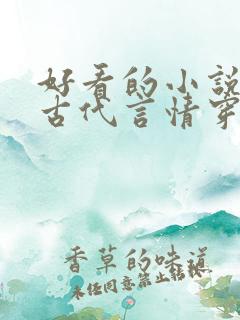 好看的小说
古代言情穿
香草的味道
未经同意禁止转载